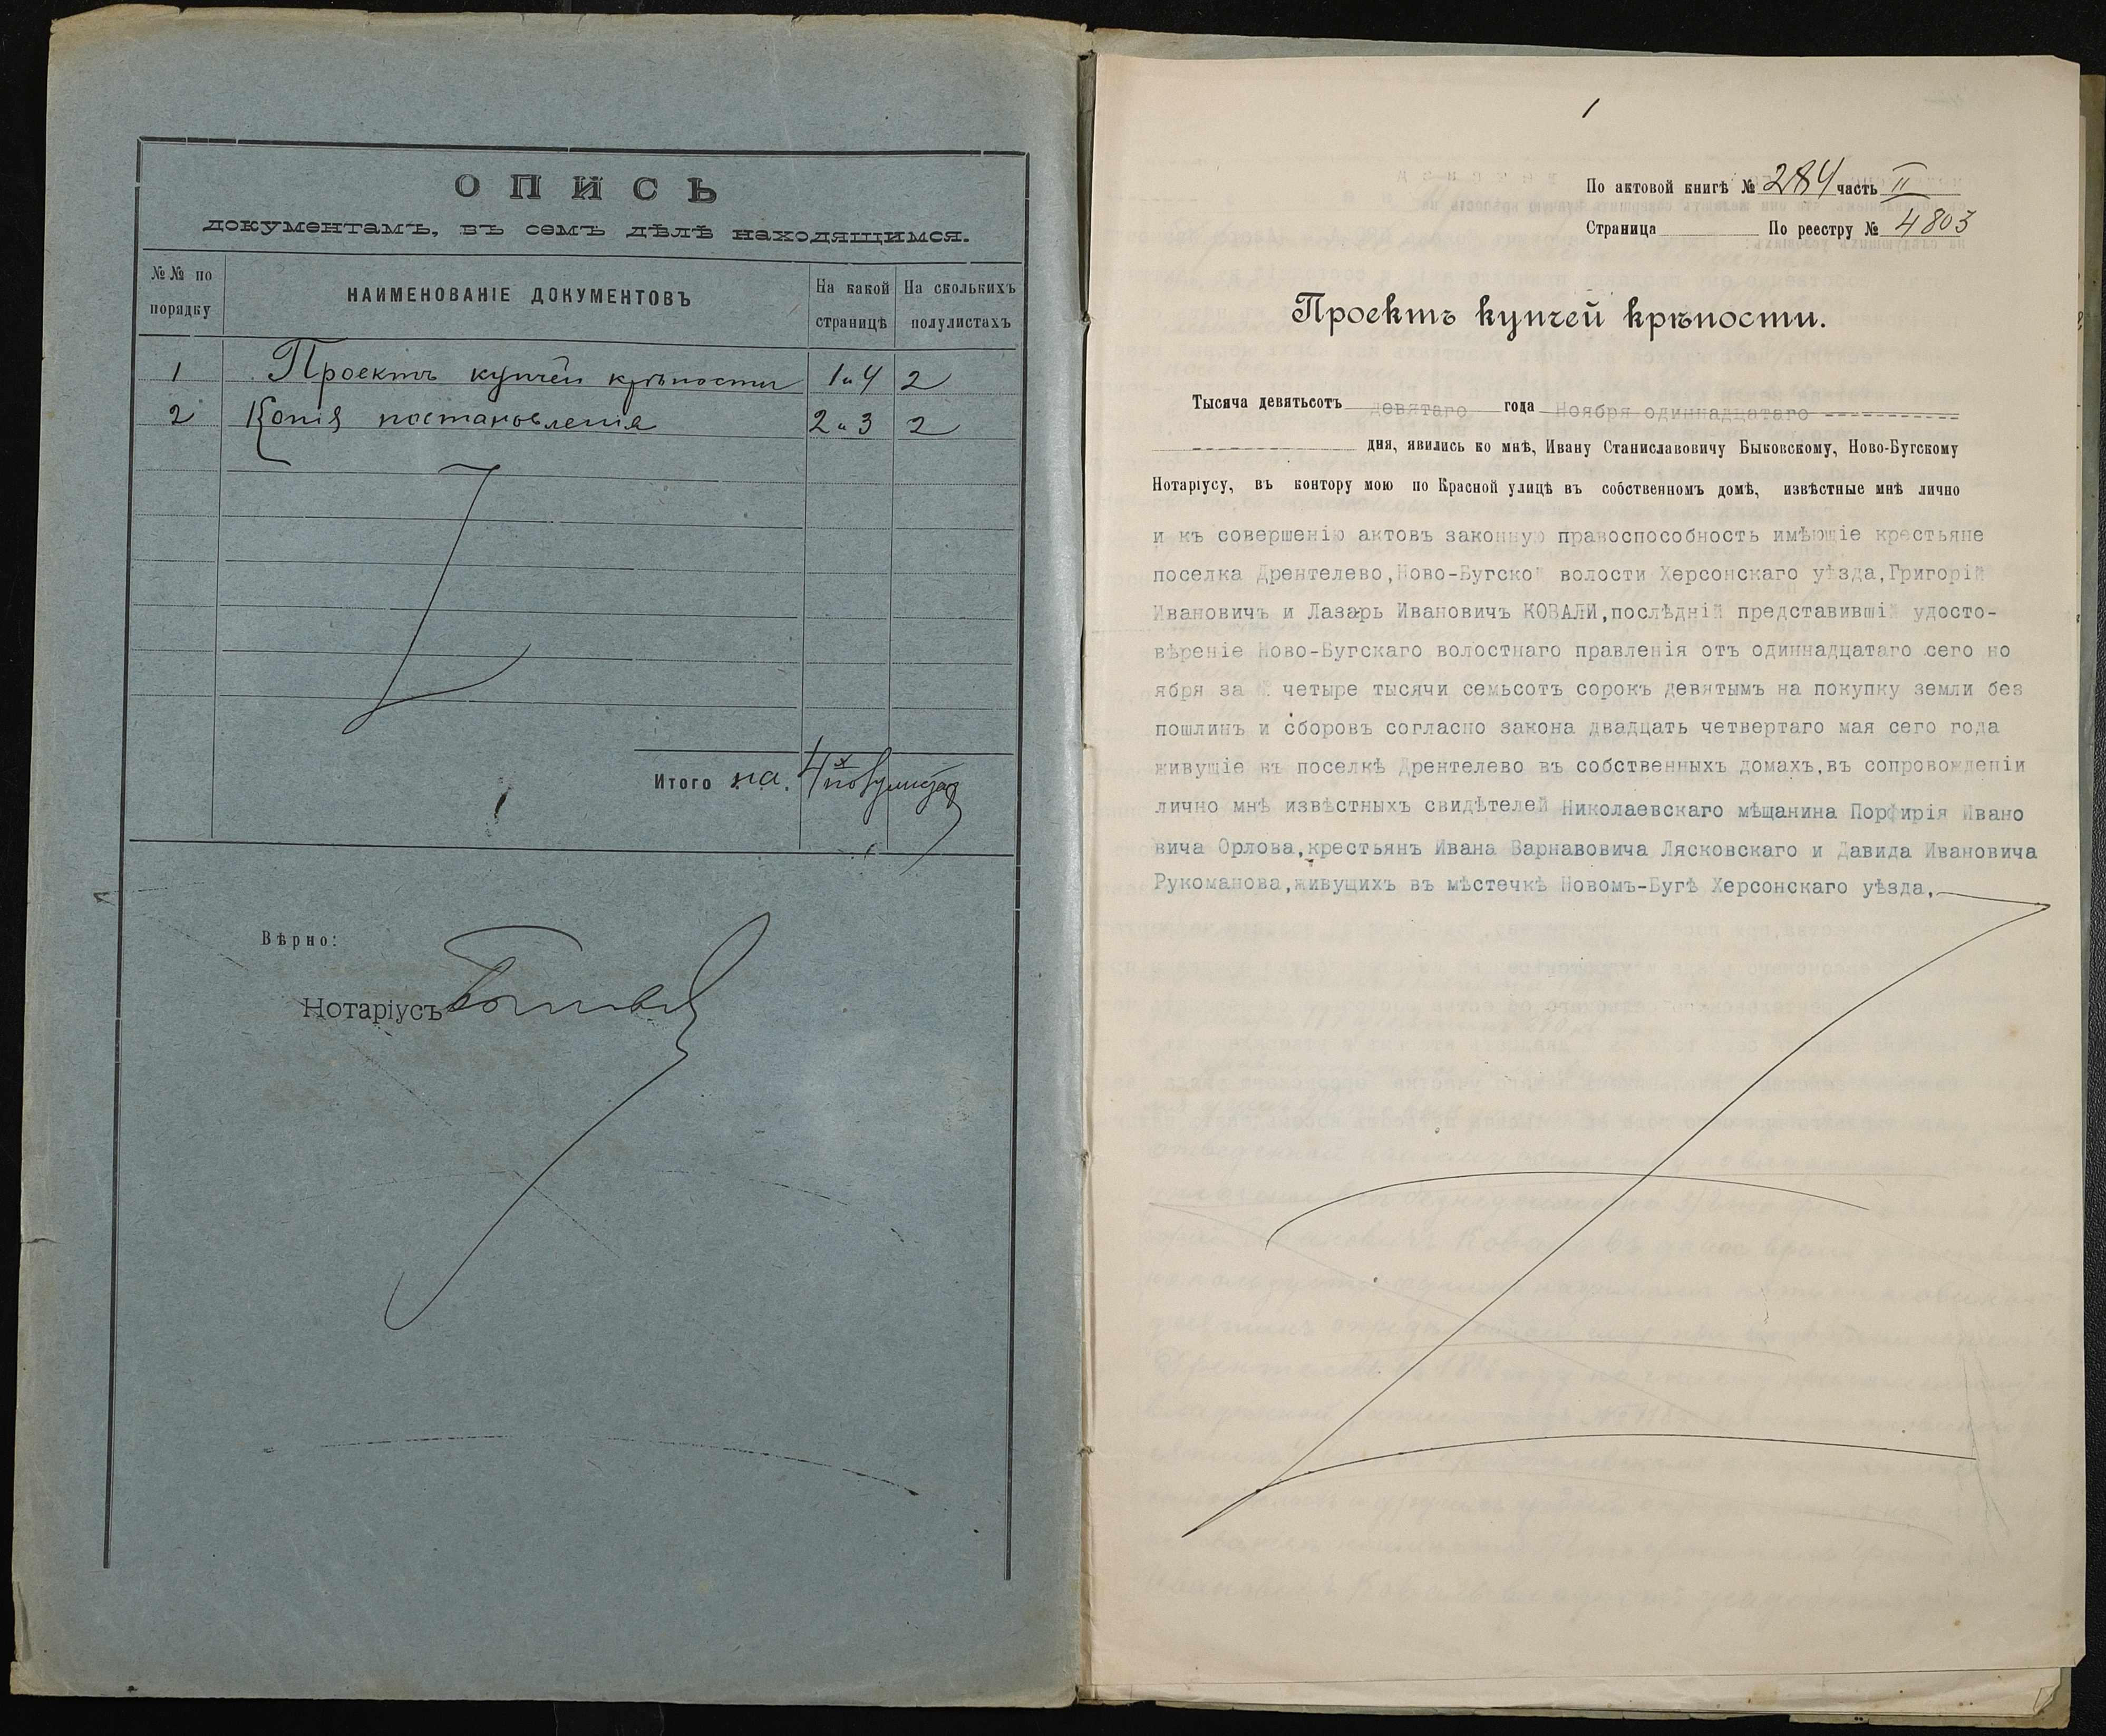 ОПИСЬ
документамъ, въ семъ дѣлѣ находящимся.
№№ по порядку
НАИМЕНОВАНІЕ ДОКУМЕНТОВЪ
На какой страницѣ
На сколькихъ полулистахъ
1 Проектъ купчей крѣпости 1 и 4 2
2 Копія постановленія 2 и 3 2
Итого на 4х полулистах
Вѣрно:
Нотаріусъ
1
По актовой книгѣ № 284 часть II
Страница По реестру № 4803
Проектъ купчей крѣпости.
Тысяча девятьсотъ девятаго года Ноября одиннадцатаго
дня, явились ко мнѣ, Ивану Станиславовичу Быковскому, Ново-Бугскому
Нотаріусу, въ контору мою по Красной улицѣ въ собственномъ домѣ, извѣстные мнѣ лично
и къ совершенію актовъ законную правоспособность имѣющіе крестьяне
поселка Дрентелево,Ново-Бугской волости Херсонскаго уѣзда,Григорій
Ивановичъ и Лазарь Ивановичъ КОВАЛИ,послѣдній представившій удосто-
вѣреніе Ново-Бугскаго волостнаго правленія отъ одиннадцатаго сего но
ября за № четыре тысячи семьсотъ сорокъ девятымъ на покупку земли без
пошлинъ и сборовъ согласно закона двадцать четвертаго мая сего года
живущіе въ поселкѣ Дрентелево въ собственныхъ домахъ,въ сопровожденіи
лично мнѣ извѣстныхъ свидѣтелей Николаевскаго мѣщанина Порфирія Ивано
вича Орлова,крестьянъ Ивана Варнавовича Лясковскаго и Давида Ивановича
Рукоманова,живущихъ въ мѣстечкѣ Новомъ-Бугѣ Херсонскаго уѣзда,